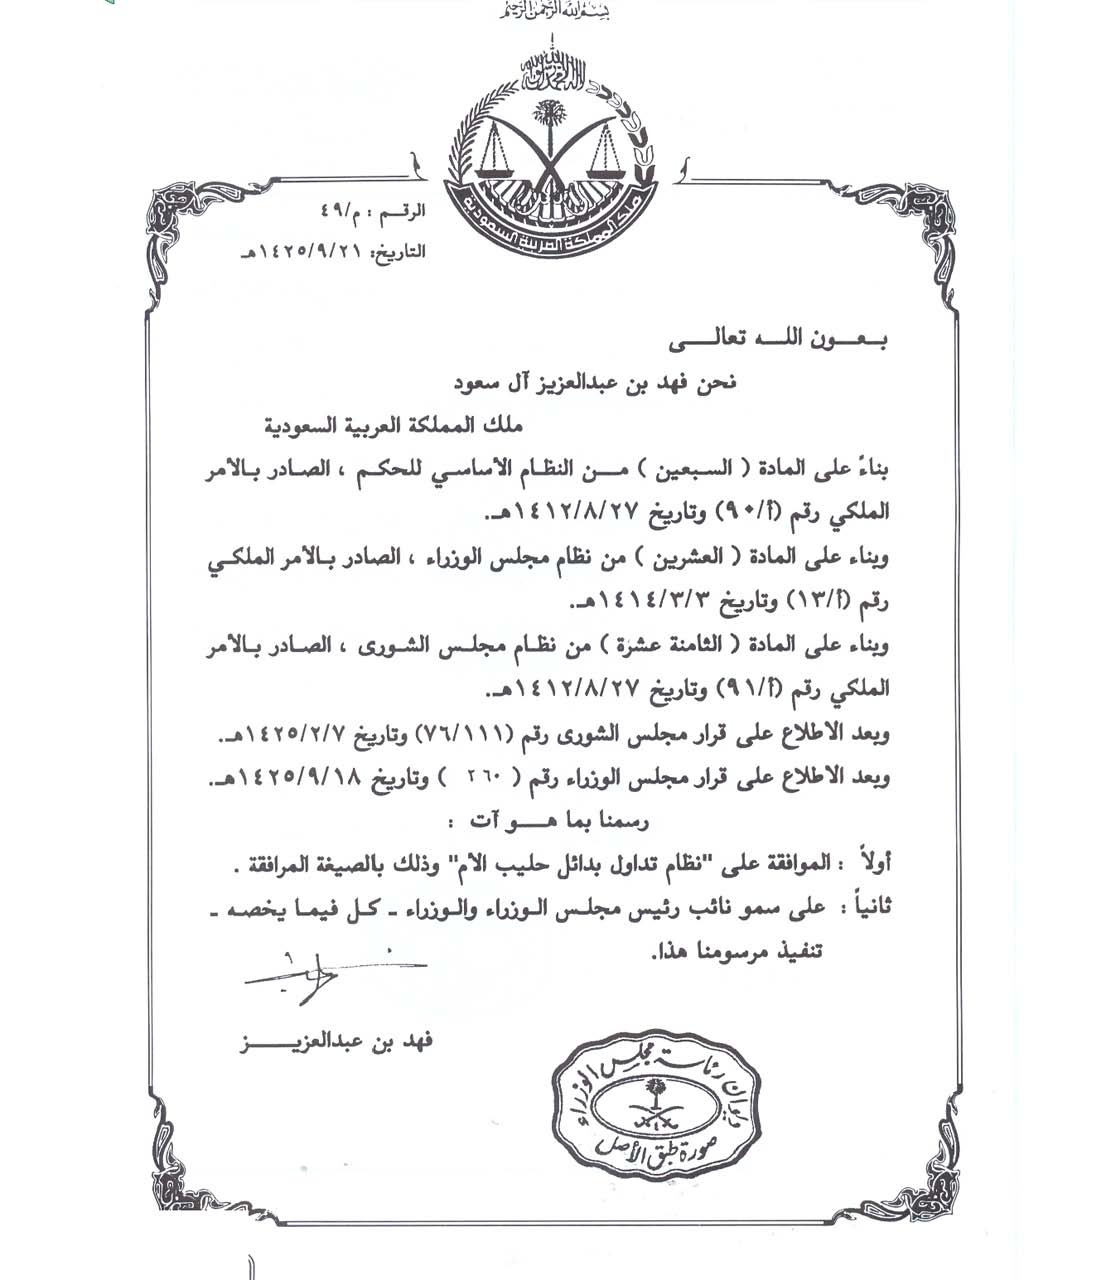 بسم الله الرحمن الرحيم
لا إله إلا الله محمد رسول الله
ملك المملكة العربية السعودية
الرقـم : م/٤٩
التاريخ: ١٤٢٥/٩/٢١هـ
بـعـون اللـه تعالـى
نحن فهد بن عبدالعزيز آل سعود
ملك المملكة العربية السعودية
بناءً على المادة ( السبعين ) مـن النظام الأساسي للحكم ، الصادر بالأمر
الملكي رقم (أ/٩٠) وتاريخ ١٤١٢/٨/٢٧هـ.
وبناء على المادة ( العشرين ) من نظام مجلس الوزراء ، الصادر بالأمر الملكـي
رقم (أ/١٣) وتاريخ ١٤١٤/٣/٣هـ.
وبناء على المادة ( الثامنة عشرة ) من نظام مجلس الشورى ، الصادر بالأمر
الملكي رقم (أ/٩١) وتاريخ ١٤١٢/٨/٢٧هـ.
وبعد الاطلاع على قرار مجلس الشورى رقم (٧٦/١١١) وتاريخ ١٤٢٥/٢/٧هـ.
وبعد الاطلاع على قرار مجلس الوزراء رقم ( ٢٦٠ ) وتاريخ ١٤٢٥/٩/١٨هـ.
رسمنا بما هـو آت :
أولاً : الموافقة على "نظام تداول بدائل حليب الأم" وذلك بالصيغة المرافقة .
ثانياً : على سمو نائب رئيس مجلس الوزراء والوزراء ـ كل فيما يخصه ـ
تنفيذ مرسومنا هذا.
فهد بن عبدالعزيـز
ديوان رئاسة مجلس الوزراء
صورة طبق الأصل